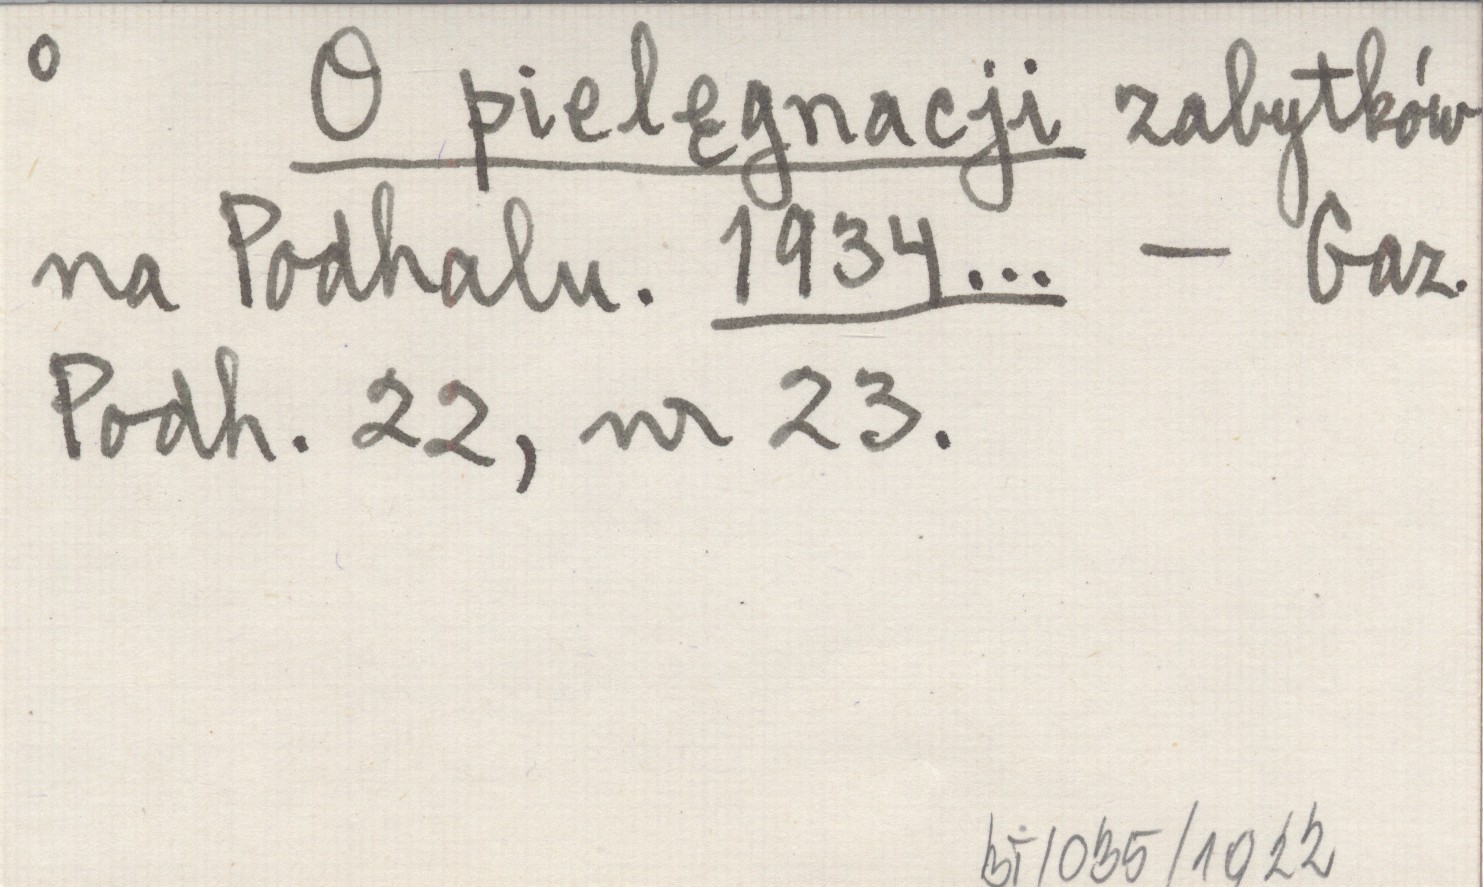 o O pielęgnacji zabytków
na Podhalu. 1934... — Gaz.
Podh. 22, nr 23.
/035/1922